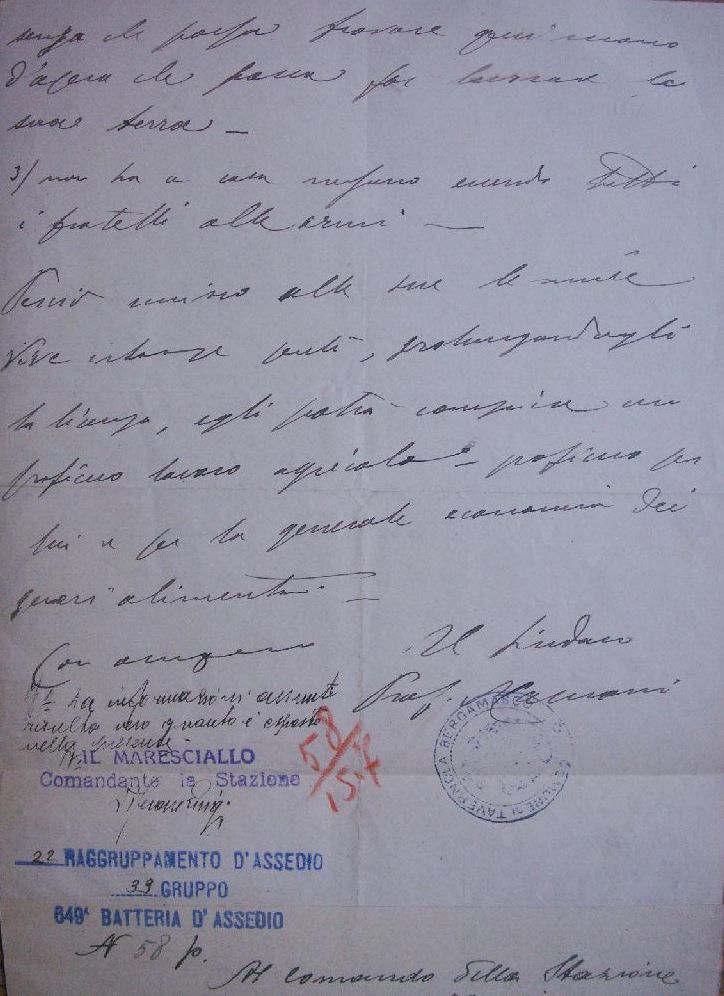 senza che possa trovare quei mano
d'opera che possa far lavorare la
sua terra —
3/ non ha a casa nessuno essendo tutti
i fratelli alle armi —
Perciò unisco alle sue le mie
vive istanze perchè, prolungandogli
la licenza, egli potrà compiere un
proficuo lavoro agricolo — proficuo per
lui e per la generale economia dei
generi alimentari. —
Con ossequio
Il Sindaco
Prof.
Da informazioni assunte
risulta vero quanto è esposto
nella presente.
IL MARESCIALLO
Comandante la Stazione
58/15.4
COMUNE DI TAVERNOLA BERGAMASCA
22 RAGGRUPPAMENTO D'ASSEDIO
39 GRUPPO
649ª BATTERIA D'ASSEDIO
N 58 p.
Al Comando della Stazione